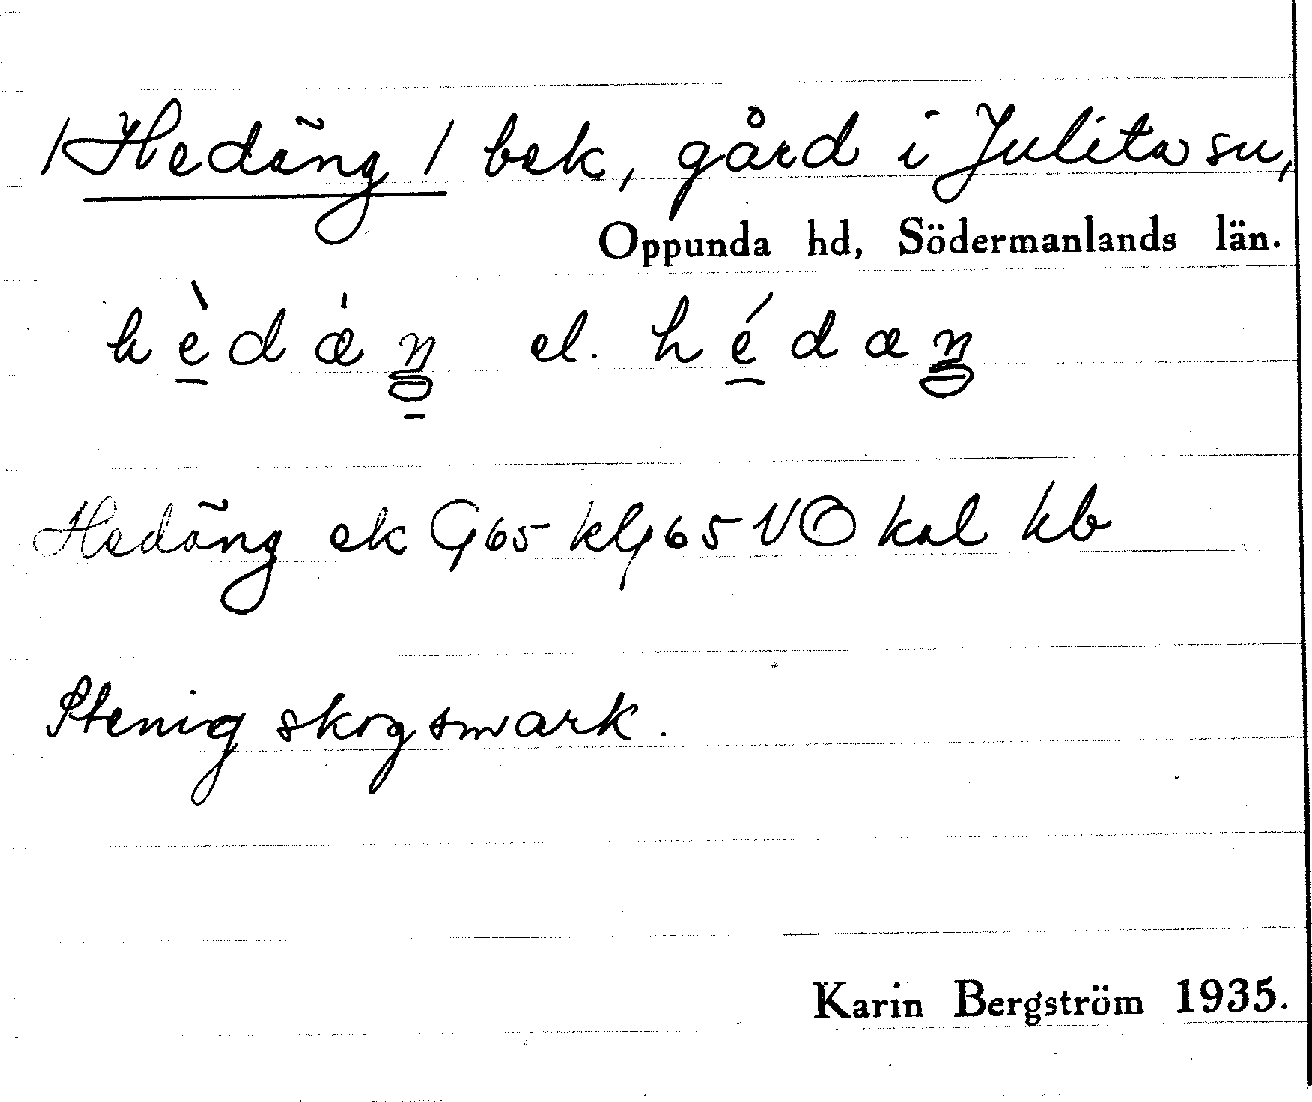 /Hedäng/ bek, gård i Julita sn,
Oppunda hd, Södermanlands län.
hèdæ̀ŋ el. hédæŋ
Hedäng ek G65 klg65 VO kal kb
Stenig skogsmark.
Karin Bergström 1935.